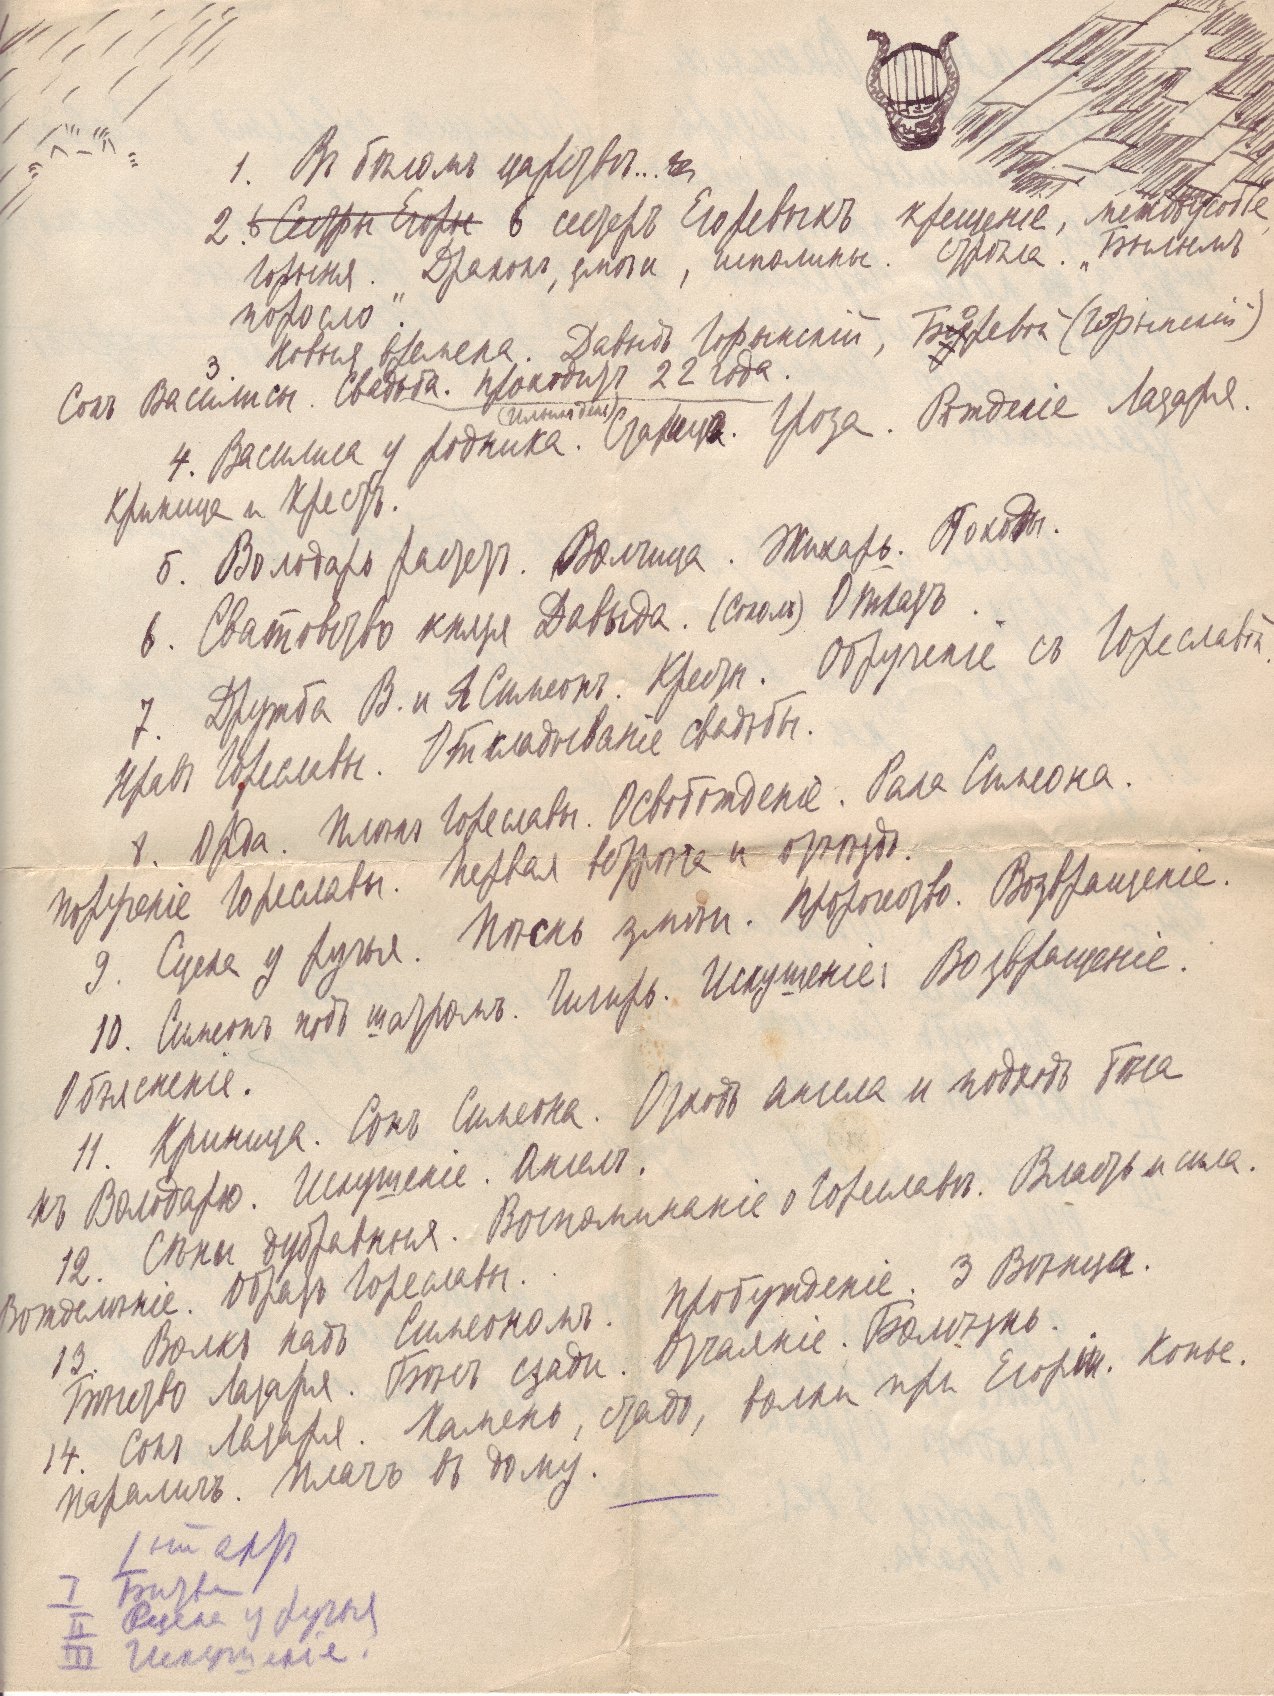 1. Въ бѣломъ царствѣ...
2. Сестры Егорья 6 сестеръ Егорьевыхъ крещеніе, междоусобіе,
горыня. Драконъ, змѣи, исполины. Стрѣла. „Быльемъ
поросло".
3 Новыя времена. Давыдъ Горынскій, Боревой (Горынскій)
Сонъ Василисы. Свадьба. Проходитъ 22 года.
4. Василиса у родника. Старица. Гроза. Рожденіе Лазаря.
Криница и Крестъ.
5. Володарь растетъ. Волчица. Жихарь. Походы.
6. Сватовство князя Давыда. (Соколъ) Отказъ.
7. Дружба В. и Симеонъ. Кресты. Обрученіе съ Гореславой.
Нравъ Гореславы. Откладываніе свадьбы.
8. Орда. Плѣнъ Гореславы. Освобожденіе. Рана Симеона.
Порученіе Гореславы. Первая встрѣча и отъѣздъ.
9. Сцена у ручья. Пѣснь змѣи. Пророчество. Возвращеніе.
10. Симеонъ подъ шатромъ. Чигирь. Искушеніе. Возвращеніе.
Объясненіе.
11. Криница. Сонъ Симеона. Отходъ ангела и подходъ бѣса
къ Володарю. Искушеніе. Ангелъ.
12. Сѣны дубравныя. Воспоминаніе о Гореславѣ. Власть и сила.
Вожделѣніе. Образъ Гореславы.
13. Волкъ надъ Симеономъ. Пробужденіе. 3 Вѣнца.
Бѣгство Лазаря. Бѣсъ сзади. Отчаяніе. Болѣзнь.
14. Сонъ Лазаря. Камень, стадо, волки при Егоріи. Копье.
Параличъ. Плачъ въ дому.
I Битва
II Сцена у ручья
III Искушеніе.